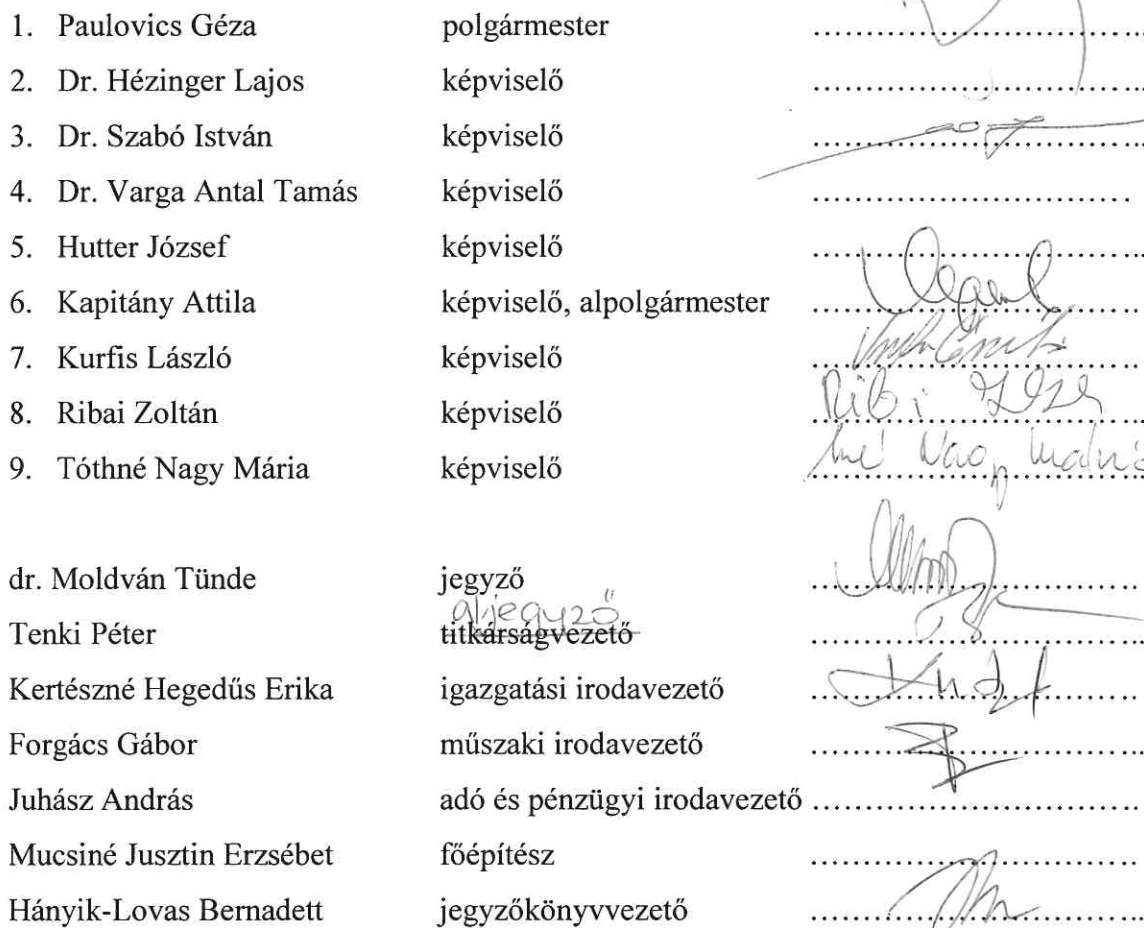 1. Paulovics Géza polgármester ..............................
2. Dr. Hézinger Lajos képviselő ..............................
3. Dr. Szabó István képviselő ..............................
4. Dr. Varga Antal Tamás képviselő ..............................
5. Hutter József képviselő ..............................
6. Kapitány Attila képviselő, alpolgármester ..............................
7. Kurfis László képviselő ..............................
8. Ribai Zoltán képviselő ..............................
9. Tóthné Nagy Mária képviselő né Nagy Mária
dr. Moldván Tünde jegyző ..............................
aljegyző
Tenki Péter titkárságvezető ..............................
Kertészné Hegedűs Erika igazgatási irodavezető ..............................
Forgács Gábor műszaki irodavezető ..............................
Juhász András adó és pénzügyi irodavezető ..............................
Mucsiné Jusztin Erzsébet főépítész ..............................
Hányik-Lovas Bernadett jegyzőkönyvvezető ..............................